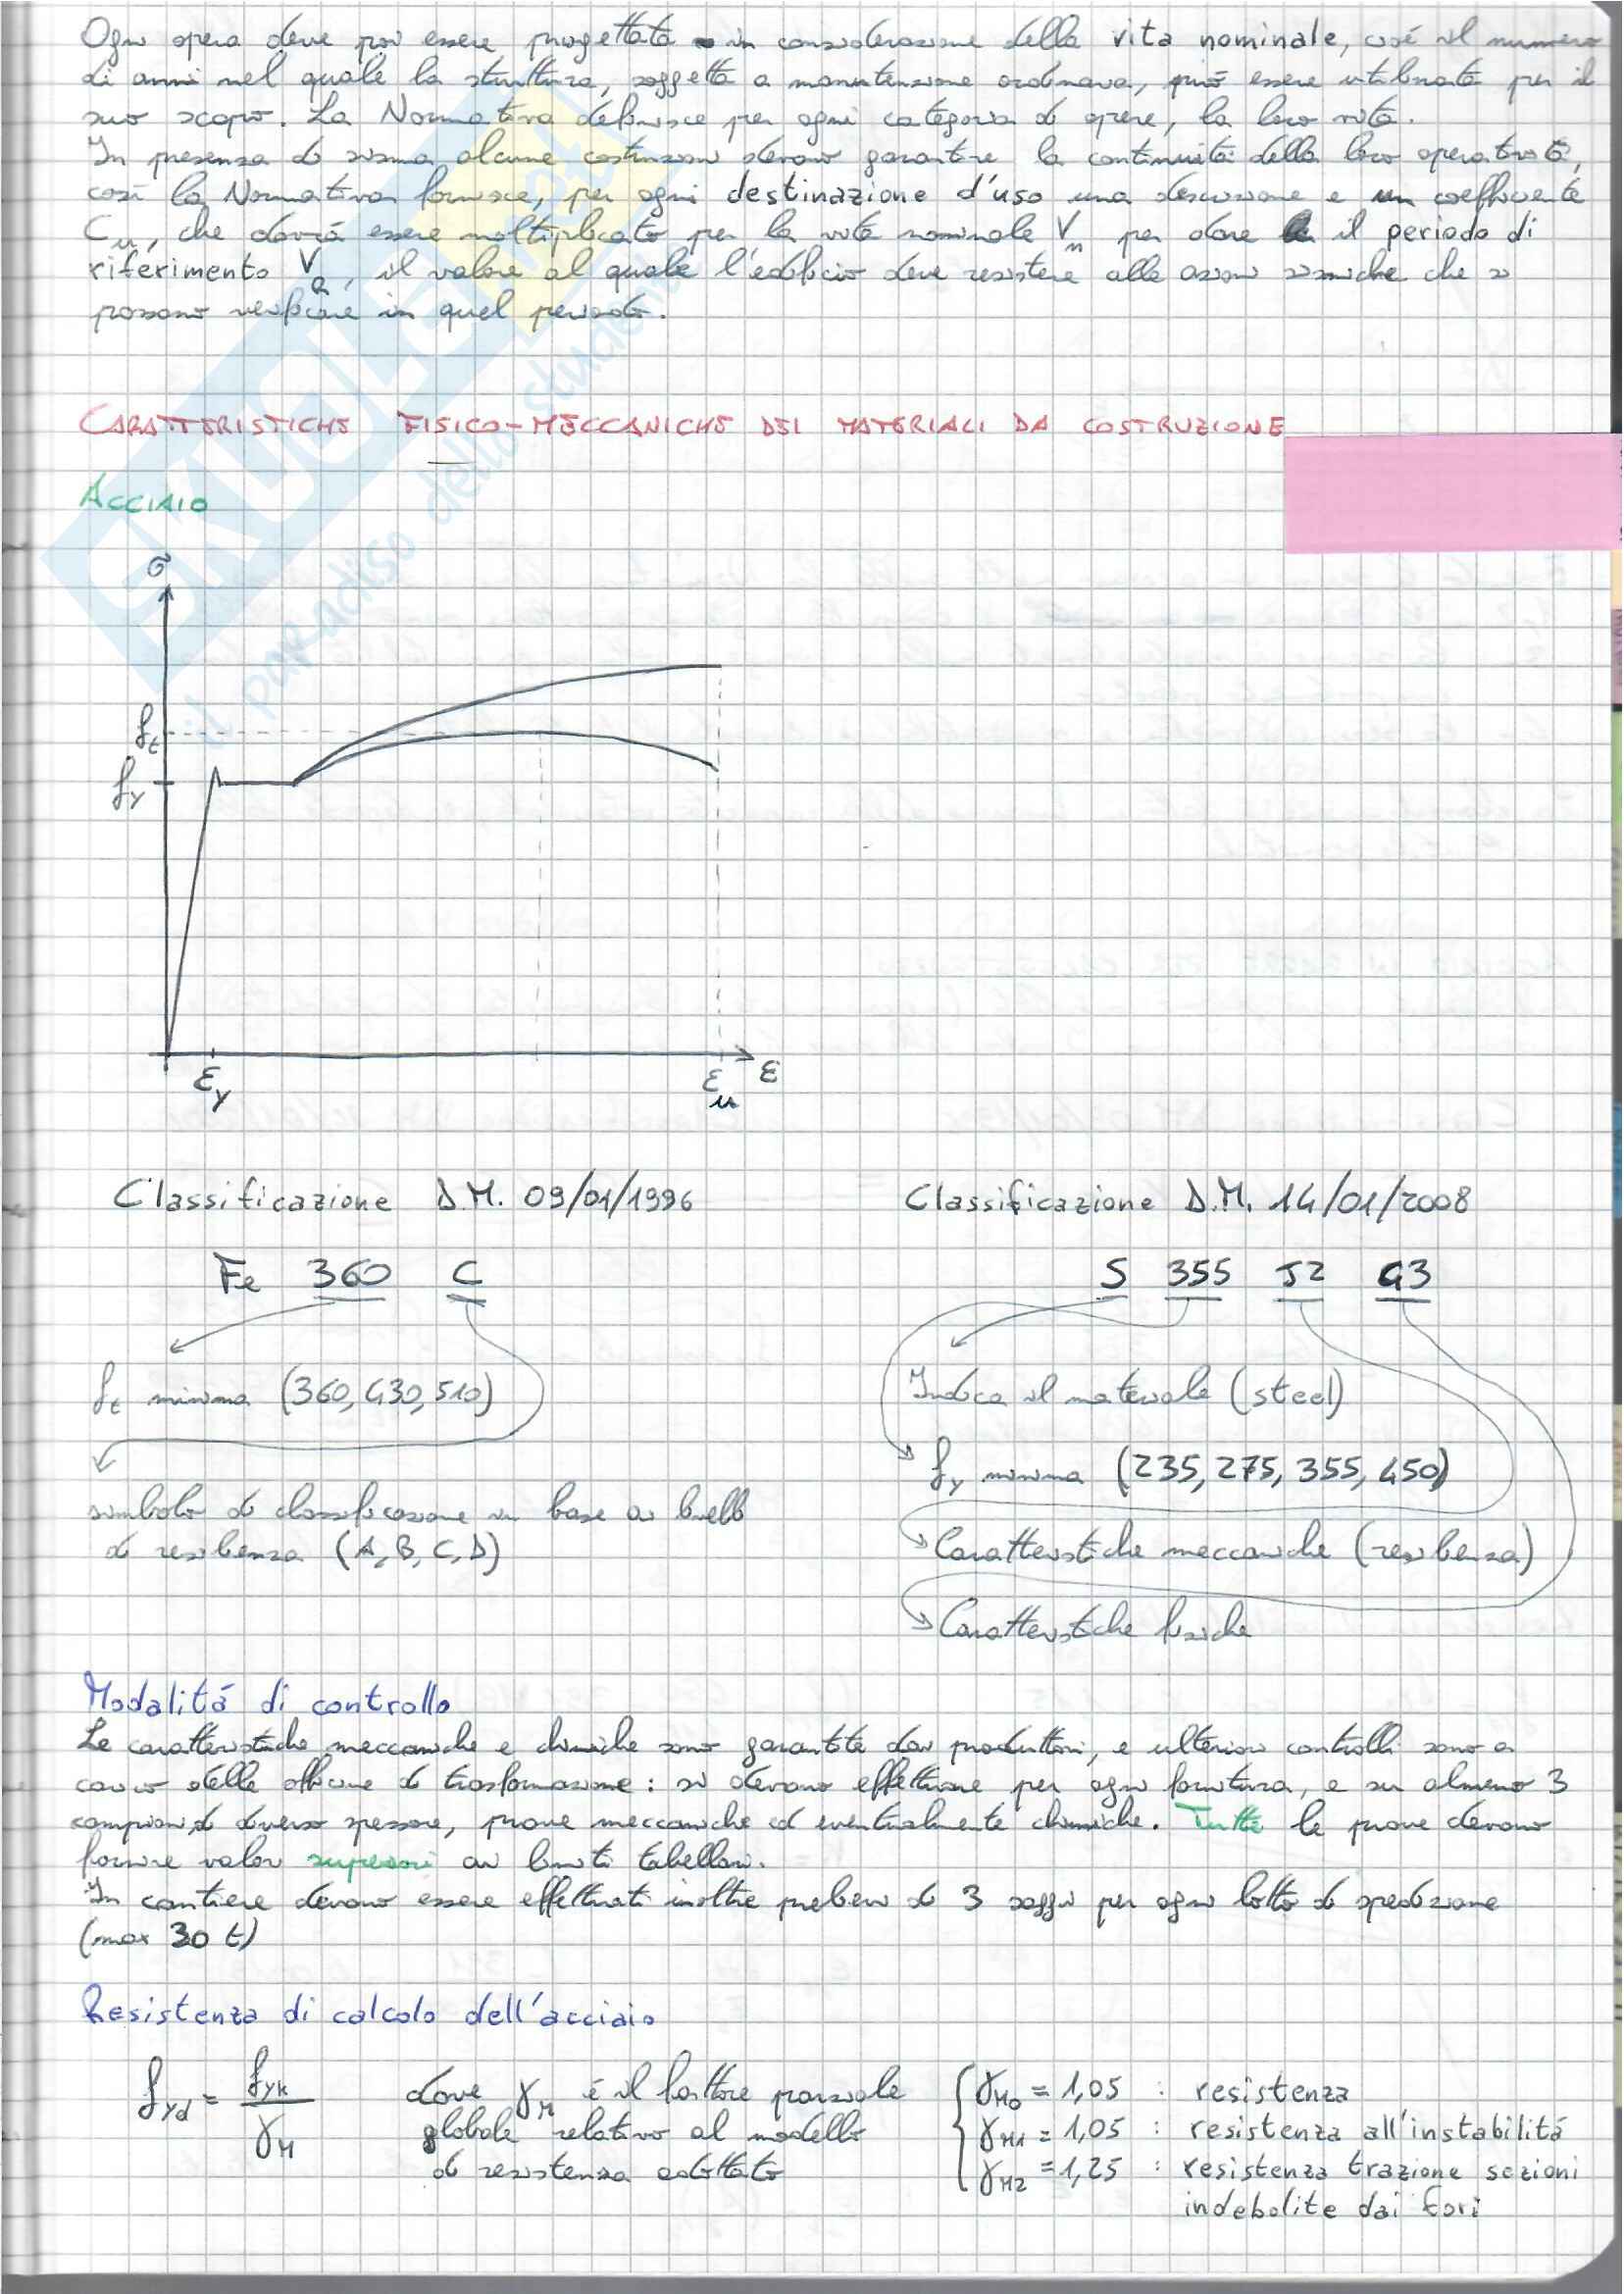 Ogni opera deve poi essere progettata in considerazione della vita nominale, cioé il numero
di anni nel quale la struttura, soggetta a manutenzione ordinaria, puó essere utilizzata per il
suo scopo. La Normativa definisce per ogni categoria di opere, la loro vita.
In presenza di sisma alcune costruzioni devono garantire la continuitá della loro operativitá,
cosí la Normativa fornisce, per ogni destinazione d'uso una descrizione e un coefficiente
Cu, che dovrá essere moltiplicato per la vita nominale Vn per dare il periodo di
riferimento VR, il valore al quale l'edificio deve resistere alle azioni sismiche che si
possono verificare in quel periodo.
CARATTERISTICHE FISICO-MECCANICHE DEI MATERIALI DA COSTRUZIONE
ACCIAIO
σ
ft
fy
εy
εu
ε
Classificazione D.M. 09/01/1996
Fe 360 C
ft minima (360, 430, 510)
simbolo di classificazione in base ai livelli
di resilienza (A, B, C, D)
Classificazione D.M. 14/01/2008
S 355 J2 G3
Indica il materiale (steel)
fy minima (235, 275, 355, 450)
Caratteristiche meccaniche (resilienza)
Caratteristiche fisiche
Modalitá di controllo
Le caratteristiche meccaniche e chimiche sono garantite dai produttori, e ulteriori controlli sono a
carico delle officine di trasformazione: si devono effettuare per ogni fornitura, e su almeno 3
campioni di diverso spessore, prove meccaniche ed eventualmente chimiche. Tutte le prove devono
fornire valori superiori ai limiti tabellari.
In cantiere devono essere effettuati inoltre prelievi di 3 saggi per ogni lotto di spedizione
(max 30 t)
Resistenza di calcolo dell'acciaio
fyd = fyk / γM
dove γM é il fattore parziale
globale relativo al modello
di resistenza adottato
γM0 = 1,05 : resistenza
γM1 = 1,05 : resistenza all'instabilitá
γM2 = 1,25 : resistenza trazione sezioni
indebolite dai fori
SKUOLA.net
il paradiso dello studente